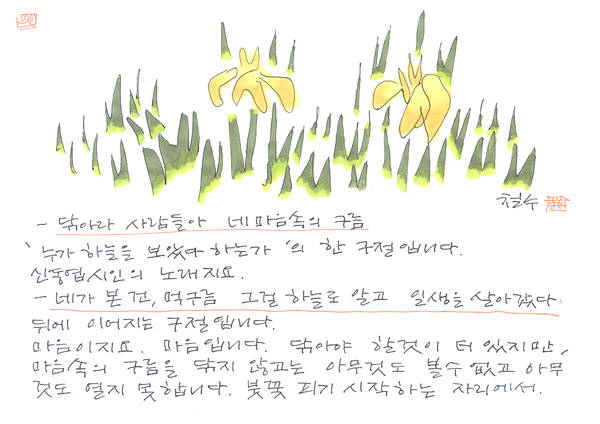 철수
- 닦아라 사람들아 네 마음속의 구름
'누가 하늘을 보았다 하는가'의 한 구절입니다.
신동엽시인의 노래지요.
- 네가 본 건, 먹구름 그걸 하늘로 알고 일생을 살아갔다.
뒤에 이어지는 구절입니다.
마음이지요. 마음입니다. 닦아야 할것이 더 있지만,
마음속의 구름을 닦지 않고는 아무것도 볼수 없고 아무
것도 열지 못합니다. 붓꽃 피기 시작하는 자리에서.